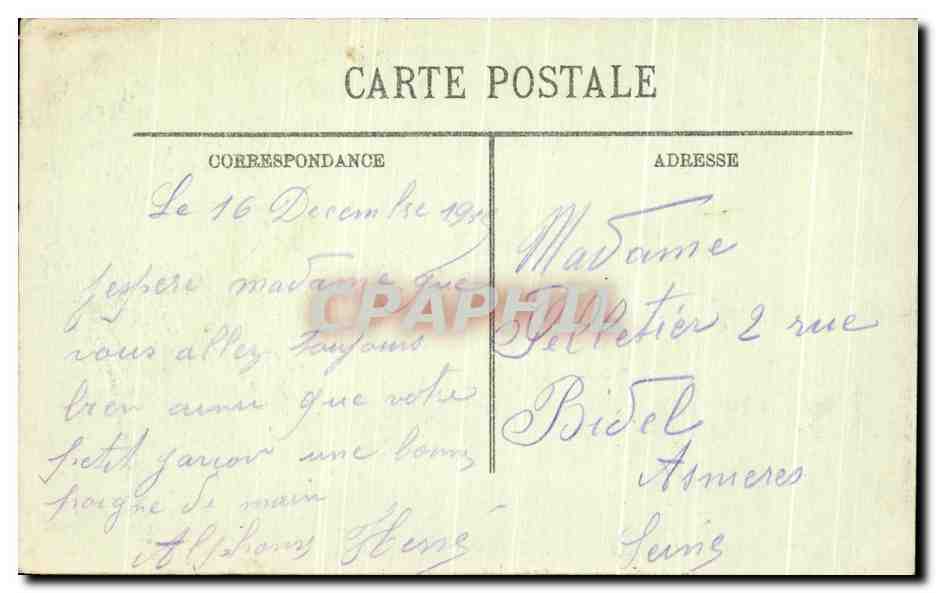 CARTE POSTALE
CORRESPONDANCE
Le 16 Decembre
jespere madame que
vous allez toujours
bien ainsi que votre
petit garcon une bonne
poigne de main
Alphons Hervé
ADRESSE
Madame
Pelletier 2 rue
Bidel
Asnieres
Seine
CPAPHIL